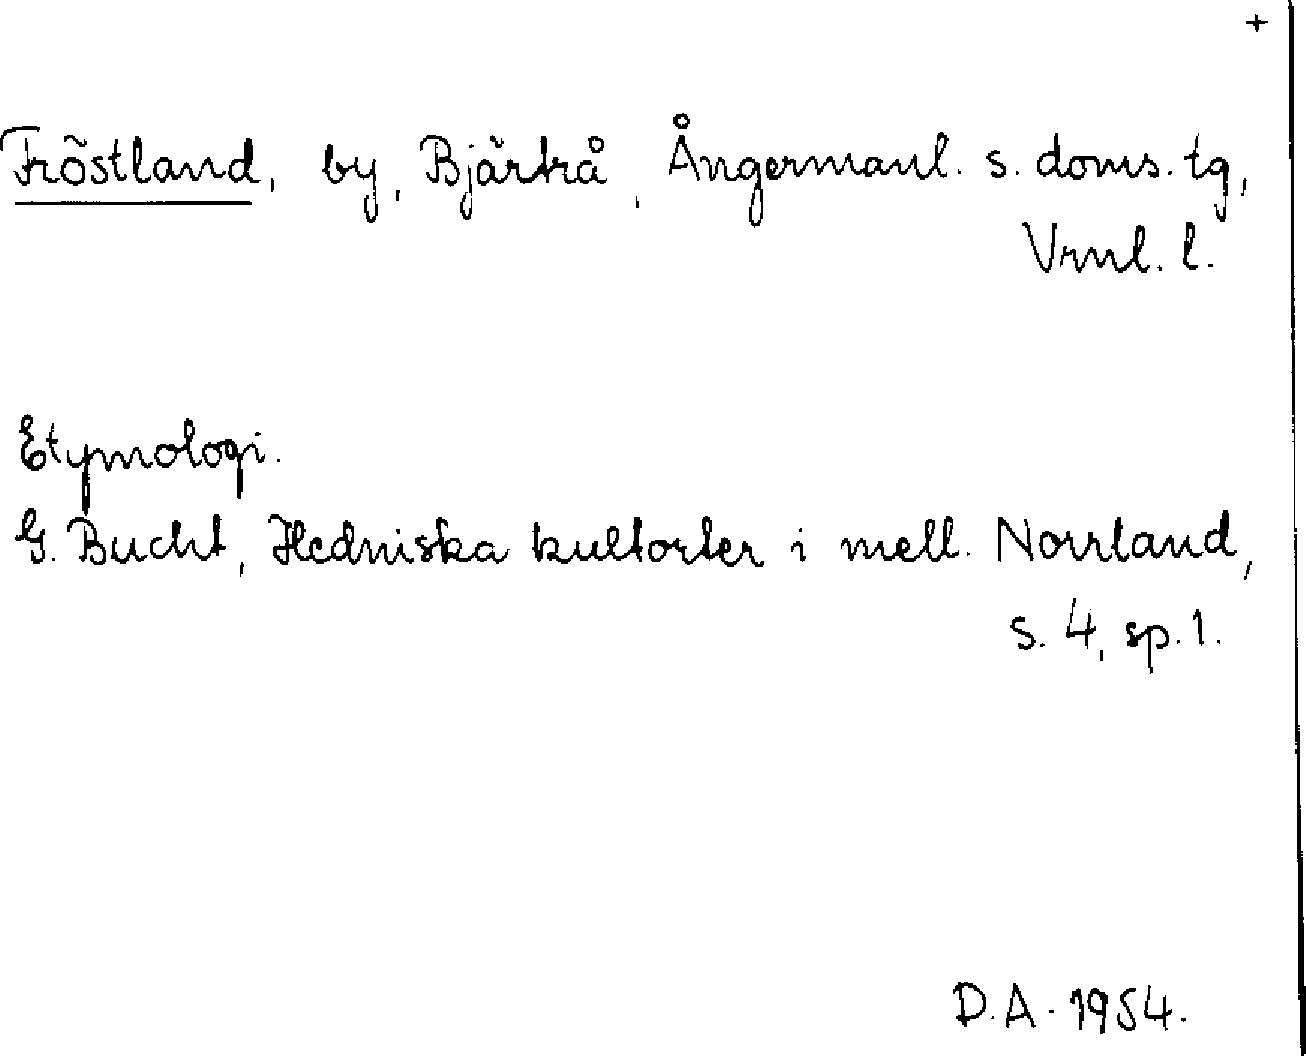 +
Fröstland, by, Bjärtrå, Ångermanl. s. doms. tg,
Vrnl. l.
Etymologi.
G. Bucht, Hedniska kultorter i mell. Norrland,
s. 4, sp. 1.
D.A. 1954.